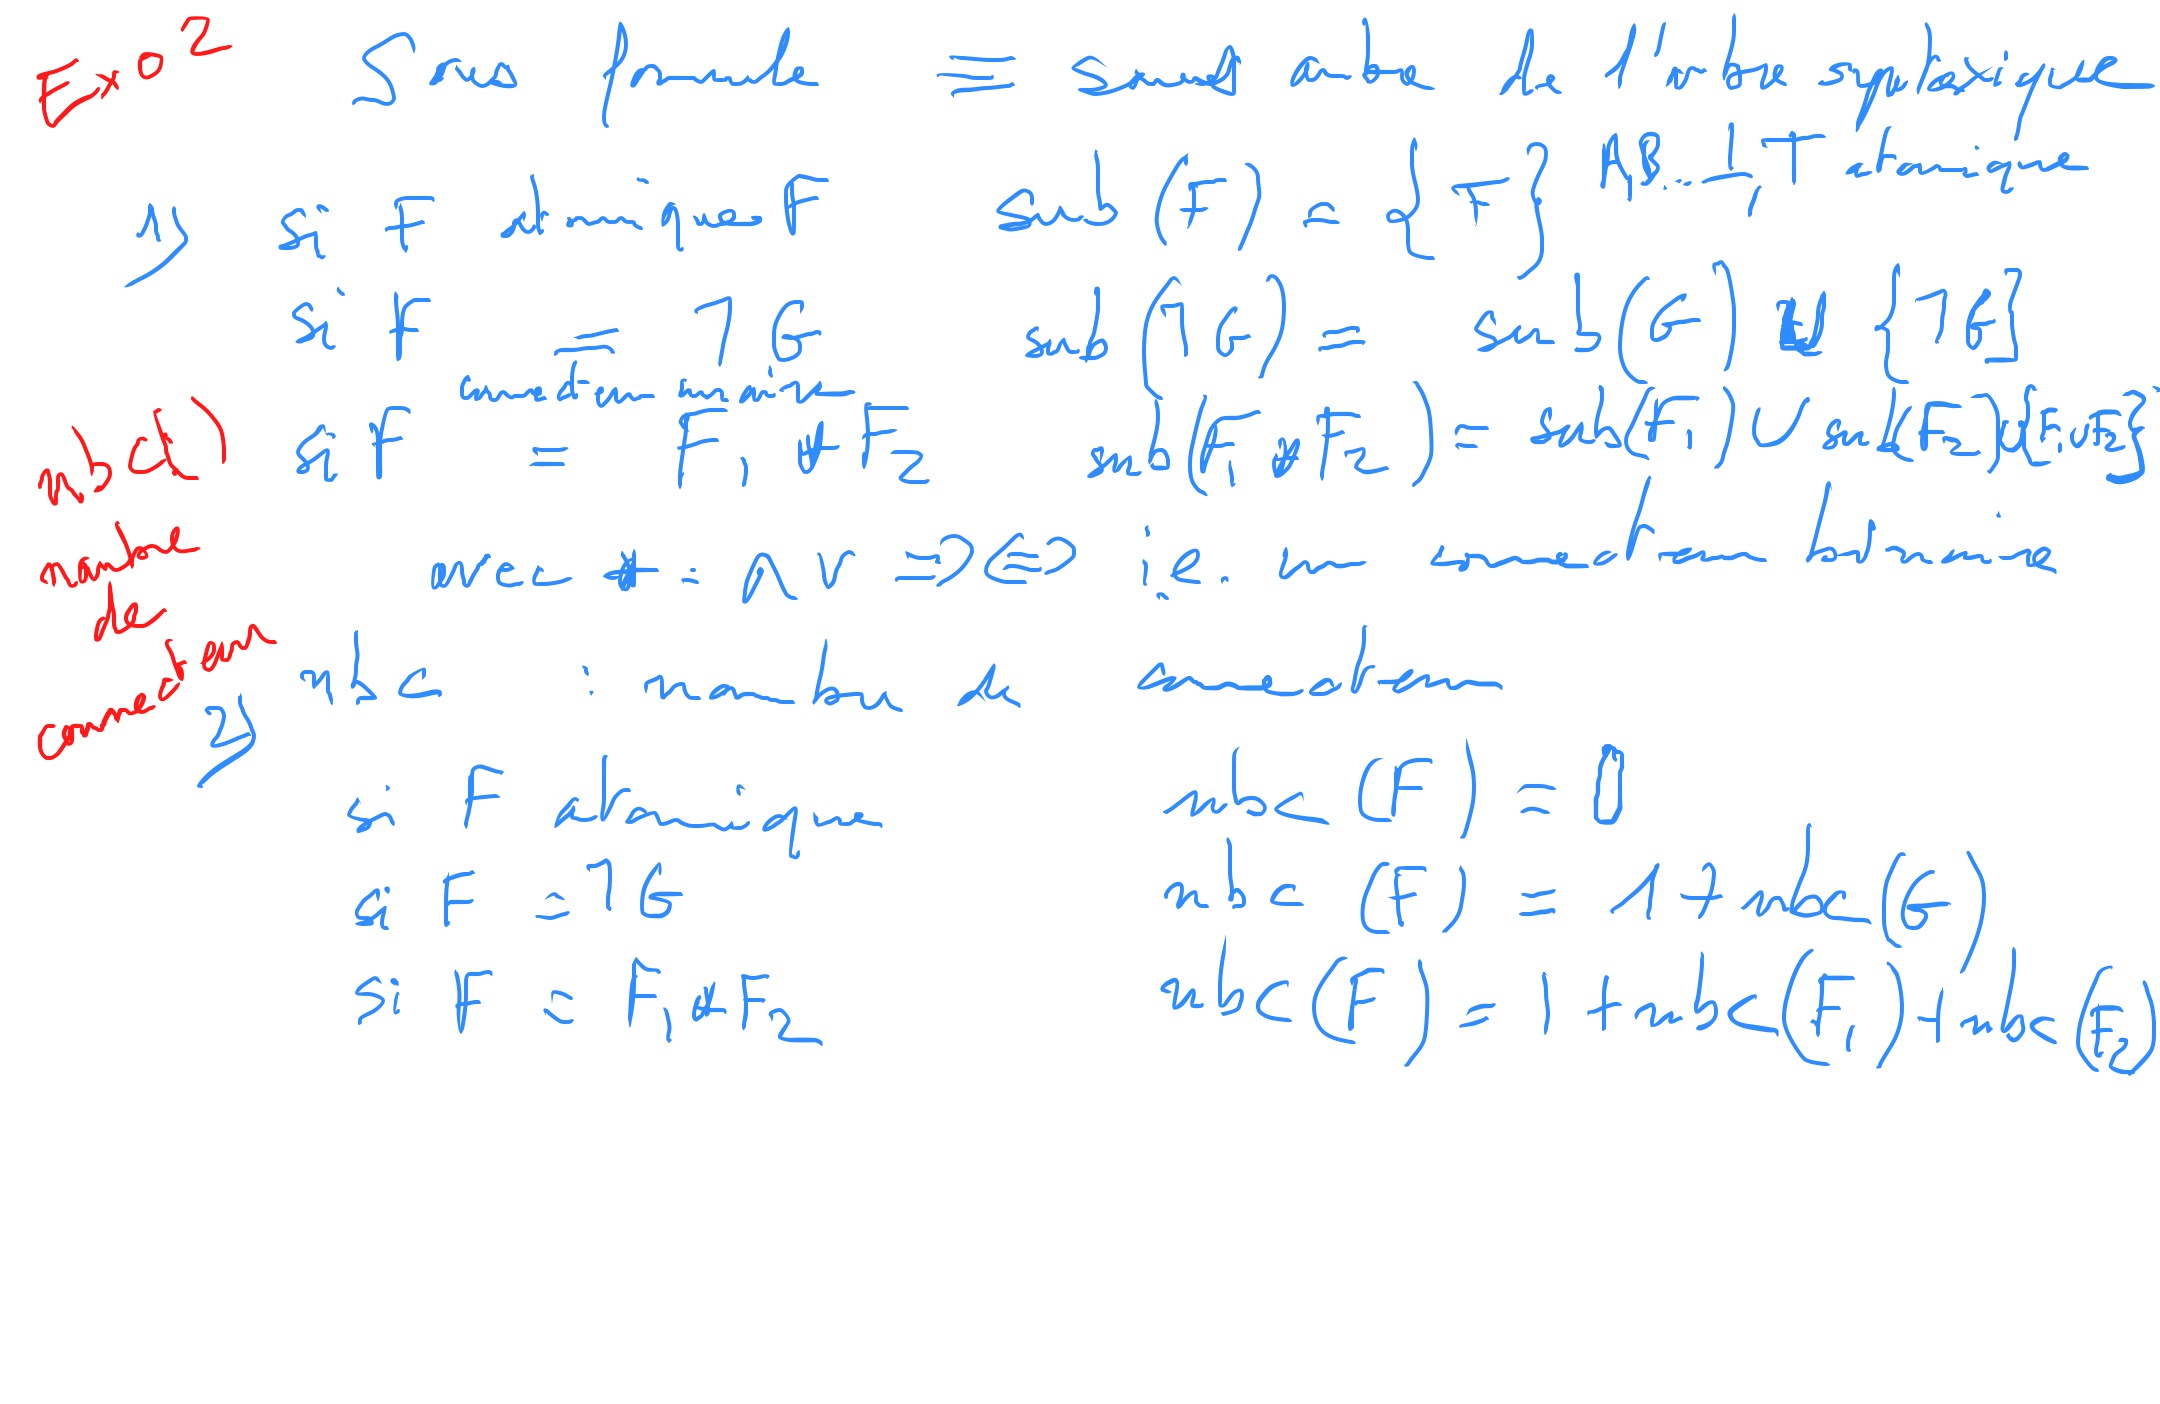 Exo 2
Sous formule ≡ sous arbre de l'arbre syntaxique
A,B... ⊥, T atomique
1) si F atomique F sub (F) = {F}
si F = ¬G sub (¬G) = sub (G) ∪ {¬G}
connecteur unaire
si F = F₁ * F₂ sub(F₁ * F₂) = sub(F₁) ∪ sub(F₂) ∪ {F₁ ∪ F₂}
avec * : ∧ ∨ => <=> i.e. un connecteur binaire
nbc()
nombre
de
connecteur
2) nbc : nombre de connecteur
si F atomique nbc (F) = 0
si F = ¬G nbc (F) = 1 + nbc(G)
si F = F₁ * F₂ nbc(F) = 1 + nbc(F₁) + nbc(F₂)